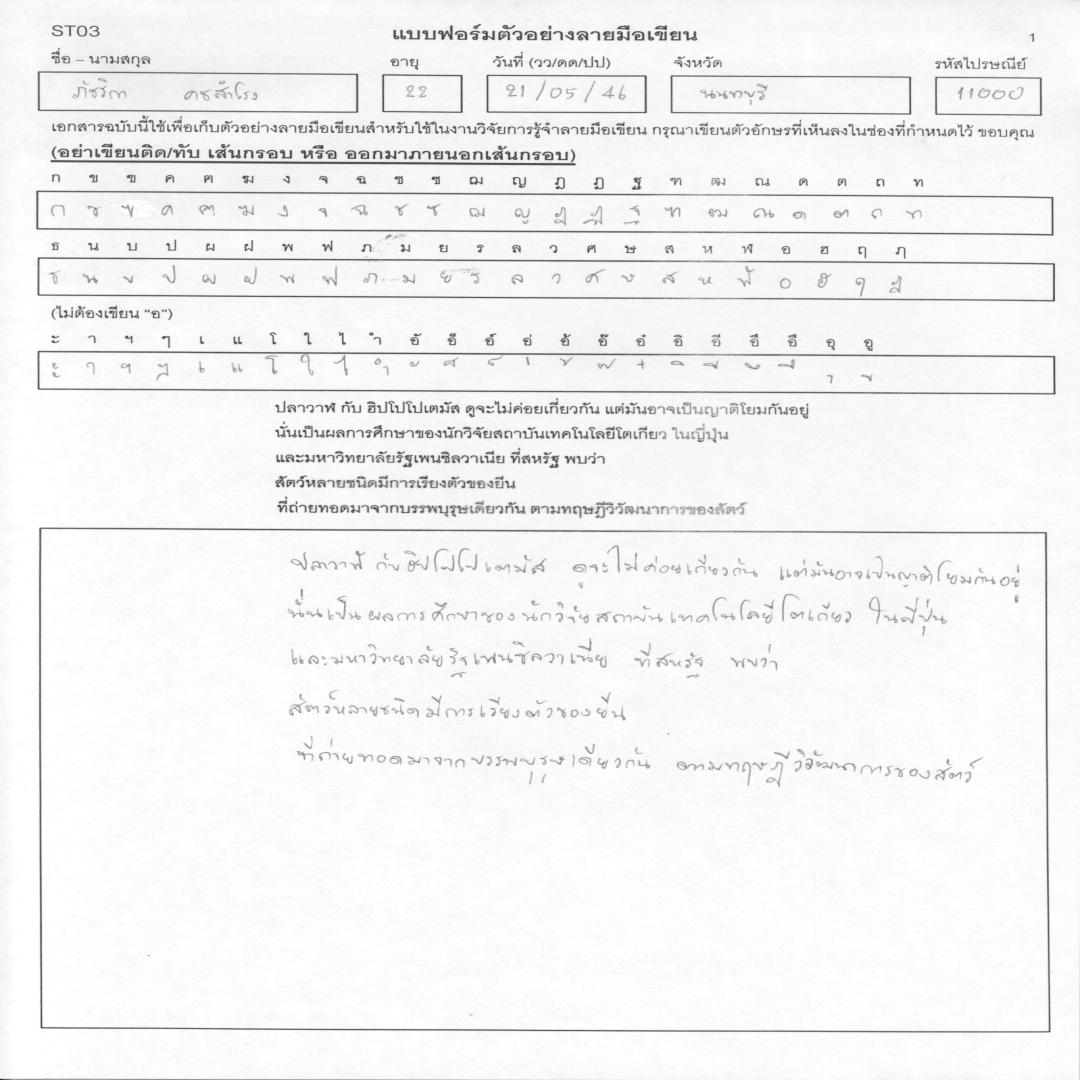 ST03 แบบฟอร์มตัวอย่างลายมือเขียน 1
ชื่อ – นามสกุล อายุ วันที่ (วว/ดด/ปป) จังหวัด รหัสไปรษณีย์
ภัชริกา คชสำโรง 22 21/05/46 นนทบุรี 11000
เอกสารฉบับนี้ใช้เพื่อเก็บตัวอย่างลายมือเขียนสำหรับใช้ในงานวิจัยการรู้จำลายมือเขียน กรุณาเขียนตัวอักษรที่เห็นลงในช่องที่กำหนดไว้ ขอบคุณ
(อย่าเขียนติด/ทับ เส้นกรอบ หรือ ออกมาภายนอกเส้นกรอบ)
ก ข ฃ ค ฅ ฆ ง จ ฉ ช ซ ฌ ญ ฎ ฏ ฐ ฑ ฒ ณ ด ต ถ ท
ก ข ฃ ค ฅ ฆ ง จ ฉ ช ซ ฌ ญ ฎ ฏ ฐ ฑ ฒ ณ ด ต ถ ท
ธ น บ ป ผ ฝ พ ฟ ภ ม ย ร ล ว ศ ษ ส ห ฬ อ ฮ ฤ ฦ
ธ น บ ป ผ ฝ พ ฟ ภ ม ย ร ล ว ศ ษ ส ห ฬ อ ฮ ฤ ฦ
(ไม่ต้องเขียน "อ")
ะ า ฯ ๆ เ แ โ ใ ไ ำ อั อ็ อ์ อ่ อ้ อ๊ อ๋ อิ อี อึ อื อุ อู
ะ า ฯ ๆ เ แ โ ใ ไ ำ ั ็ ์ ่ ้ ๊ ๋ ิ ี ึ ื ุ ู
ปลาวาฬ กับ ฮิปโปโปเตมัส ดูจะไม่ค่อยเกี่ยวกัน แต่มันอาจเป็นญาติโยมกันอยู่
นั่นเป็นผลการศึกษาของนักวิจัยสถาบันเทคโนโลยีโตเกียว ในญี่ปุ่น
และมหาวิทยาลัยรัฐเพนซิลวาเนีย ที่สหรัฐ พบว่า
สัตว์หลายชนิดมีการเรียงตัวของยีน
ที่ถ่ายทอดมาจากบรรพบุรุษเดียวกัน ตามทฤษฎีวิวัฒนาการของสัตว์
ปลาวาฬ กับ ฮิปโปโปเตมัส ดูจะไม่ค่อยเกี่ยวกัน แต่มันอาจเป็นญาติโยมกันอยู่
นั่นเป็นผลการศึกษาของนักวิจัยสถาบันเทคโนโลยีโตเกียว ในญี่ปุ่น
และมหาวิทยาลัยรัฐเพนซิลวาเนีย ที่สหรัฐ พบว่า
สัตว์หลายชนิดมีการเรียงตัวของยีน
ที่ถ่ายทอดมาจากบรรพบุรุษเดียวกัน ตามทฤษฎีวิวัฒนาการของสัตว์